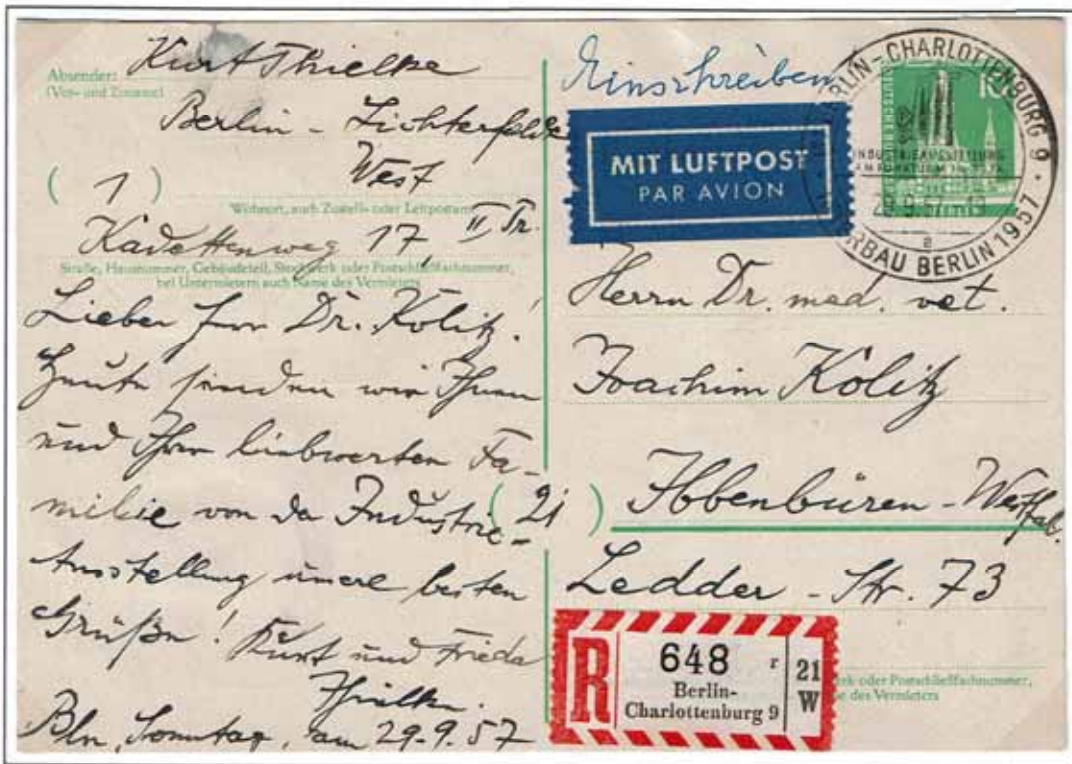 Absender: Kurt Thielke
(Vor- und Zuname)
Berlin - Lichterfelde
West
( 1 )
Wohnort, auch Zustell- oder Leitpostamt
Kadettenweg 17, II Tr.
Straße, Hausnummer, Gebäudeteil, Stockwerk oder Postschließfachnummer,
bei Untermietern auch Name des Vermieters
Lieber Herr Dr. Kolitz!
Heute senden wir Ihnen
und Ihrer liebwerten Fa-
milie von da Industrie-
Ausstellung unere besten
Grüße! Kurt und Frieda
Thielke.
Bln, Sonntag, am 29.9.57
Einschreiben
MIT LUFTPOST
PAR AVION
BERLIN-CHARLOTTENBURG 9
INDUSTRIEAUSSTELLUNG
AM FUNKTURM
29.9.57
a
BERLIN 1957
10
Herrn Dr. med. vet.
Joachim Kolitz
( 21 ) Ibbenbüren - Westfal.
Ledder - Str. 73
R
648 r
Berlin-
Charlottenburg 9
21
W
oder Postschließfachnummer,
des Vermieters